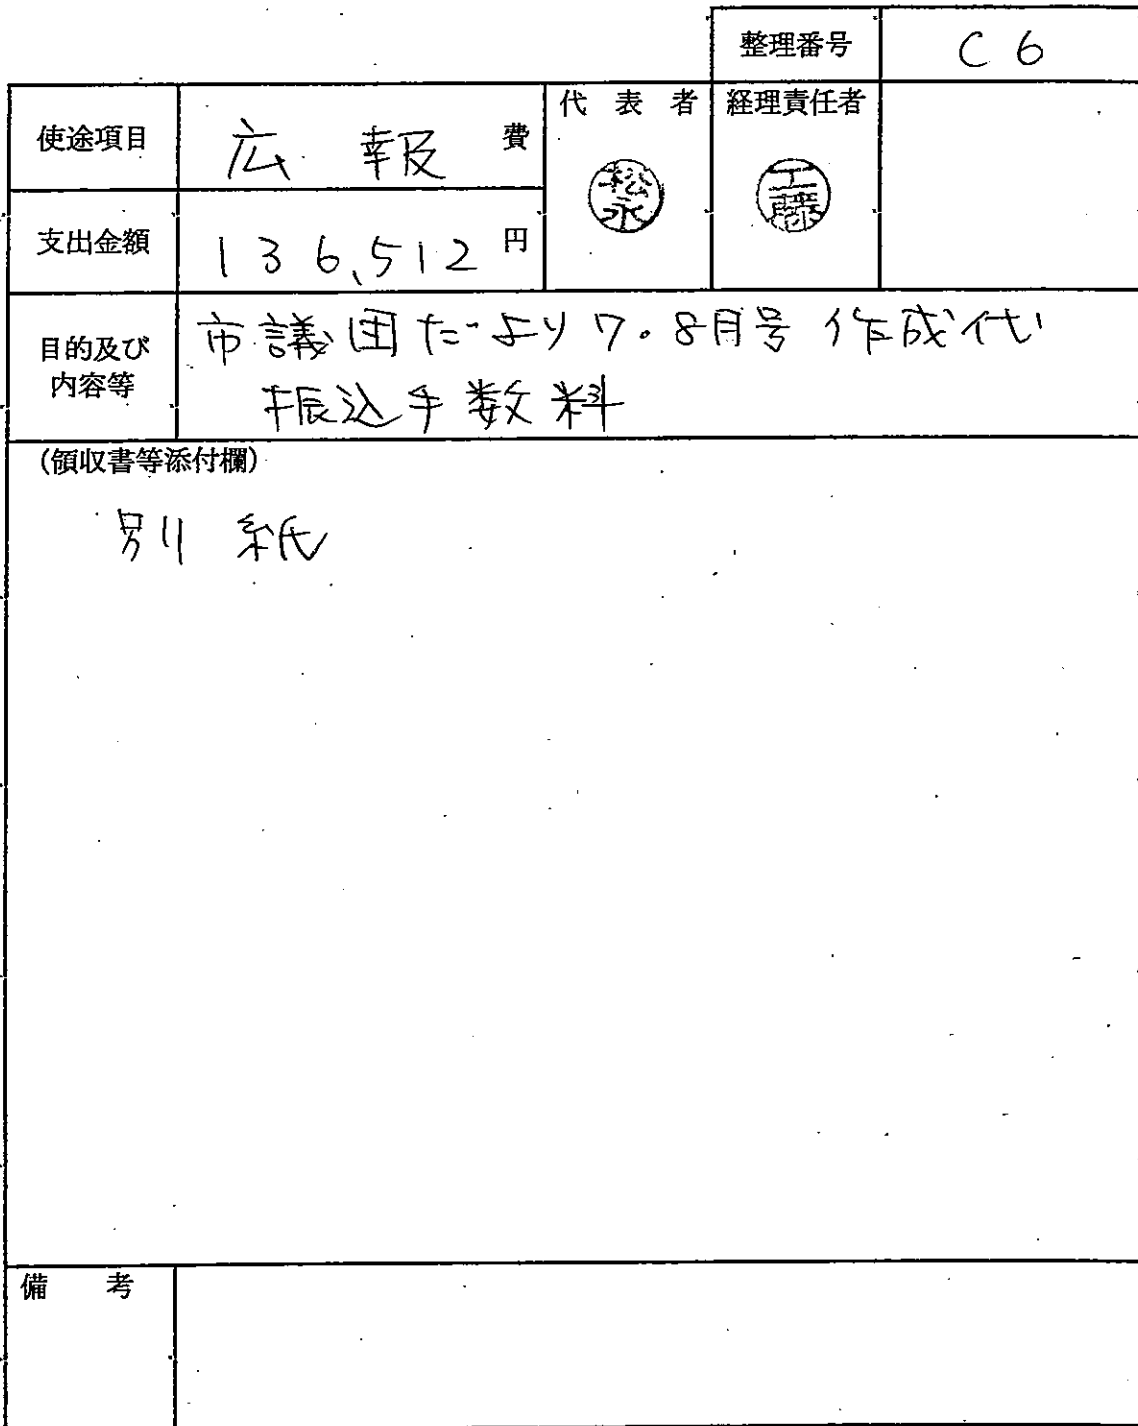 整理番号 C6
使途項目 広報 費
代表者 松永
経理責任者 工藤
支出金額 136,512 円
目的及び内容等
市議団だより7・8月号作成代
振込手数料
(領収書等添付欄)
別紙
備考